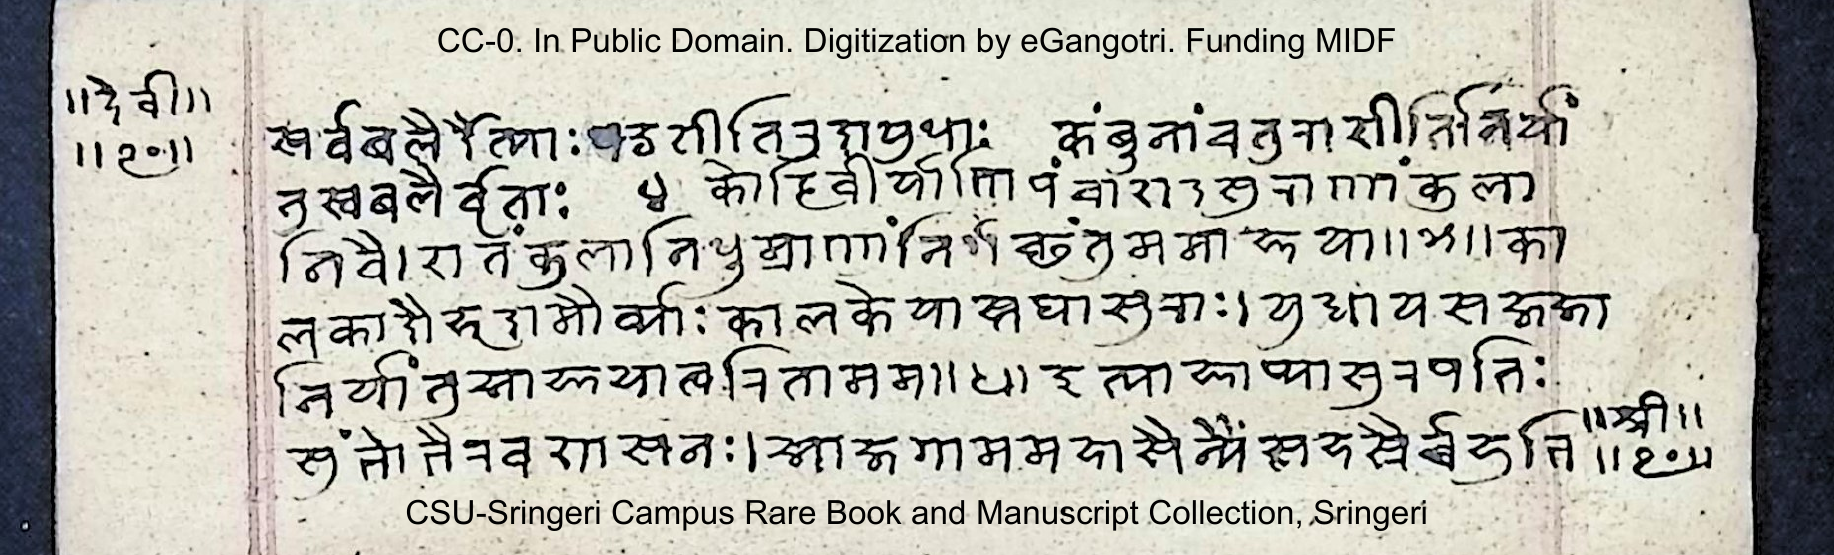 CC-0. In Public Domain. Digitization by eGangotri. Funding MIDF
॥देवी॥
॥२०॥
सर्वबलैर्दैत्याः षडशीतिरुदायुधाः कंबुनांचतुराशीतिर्निर्यां
तुस्वबलैर्वृताः ४ कोटिवीर्याणि पंचाशदसुराणांकुला
निवै। शतंकुलानिधुम्राणांनिर्गच्छंतुममाज्ञया॥५॥का
लकादौहृदामौर्व्याःकालकेयास्तथासुराः। युधायसज्जा
निर्यांतुआज्ञयात्वरितामम॥६॥इत्याज्ञाप्यासुरपतिः
सुंभोभैरवशासनः। आजगाममहासैन्यैंसहस्रैर्बहुभि
॥श्री॥
॥२०॥
CSU-Sringeri Campus Rare Book and Manuscript Collection, Sringeri